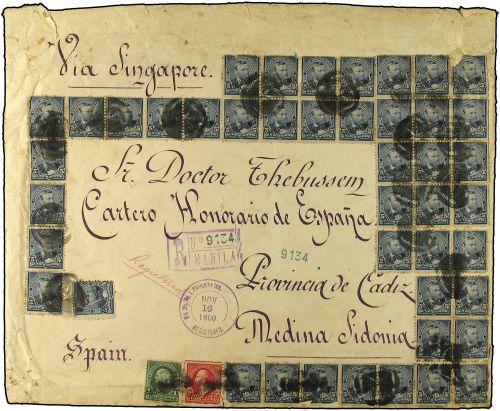 Via Singapore.
Sr. Doctor Thebussem
Cartero Honorario de España.
R No 9134
MANILA
9134
Registered
Provincia de Cádiz
NOV
16
1900
REGISTERED
Medina Sidonia
Spain.